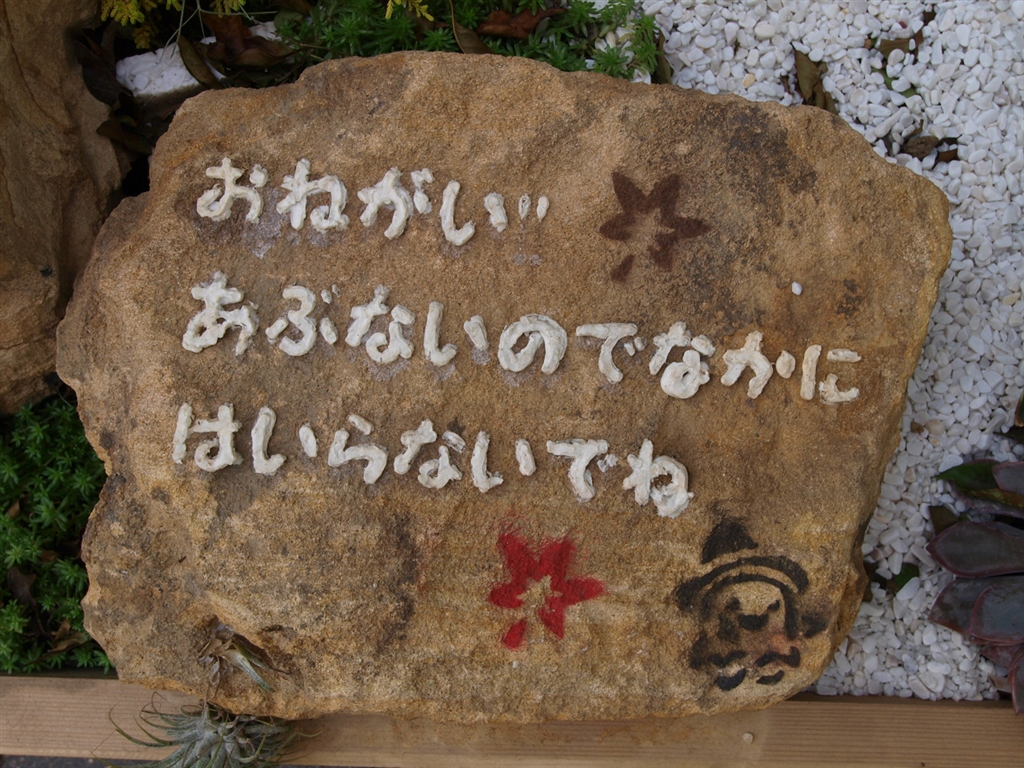 おねがい‥
あぶないのでなかに
はいらないでね